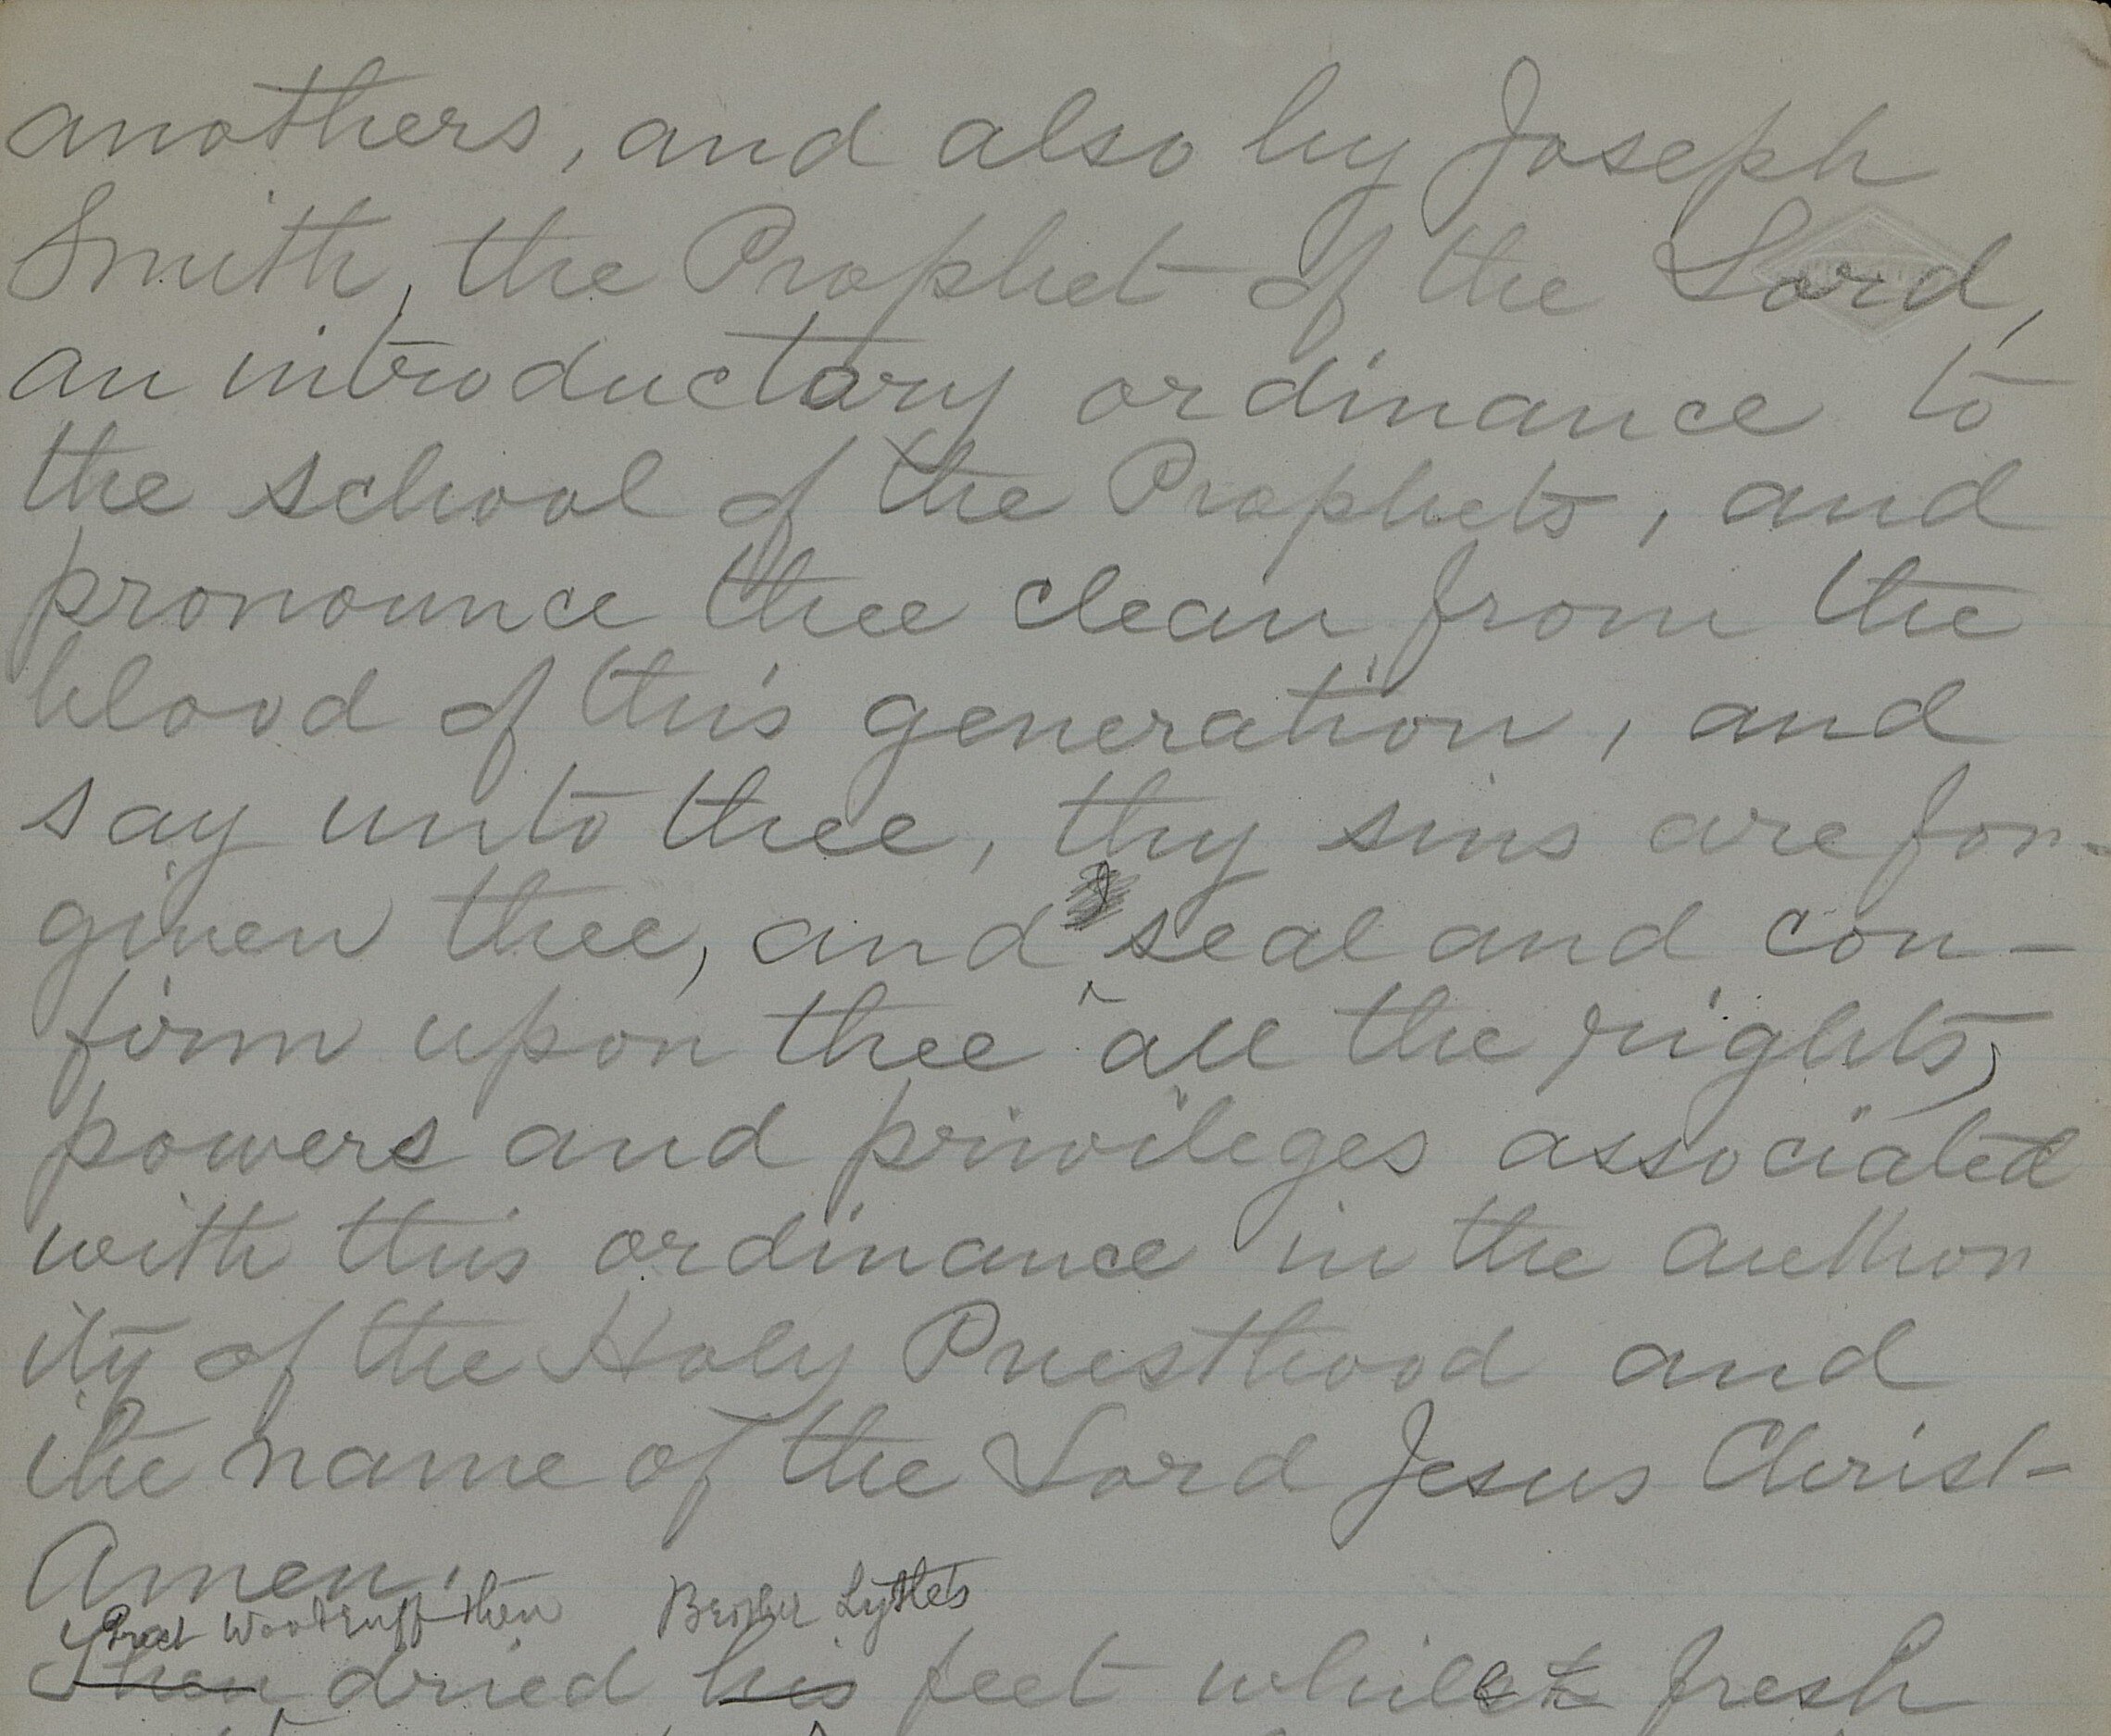 anothers, and also by Joseph
Smith, the Prophet of the Lord,
an introductory ordinance to
the school of the Prophets, and
pronounce thee clean from the
blood of this generation, and
say unto thee, thy sins are for-
given thee, and seal and con-
firm upon thee all the rights,
powers and privileges associated
with this ordinance in the author
ity of the Holy Priesthood and
the name of the Lord Jesus Christ-
Amen.
Prest Woodruff then Brother Lythe's
Then dried his feet while fresh